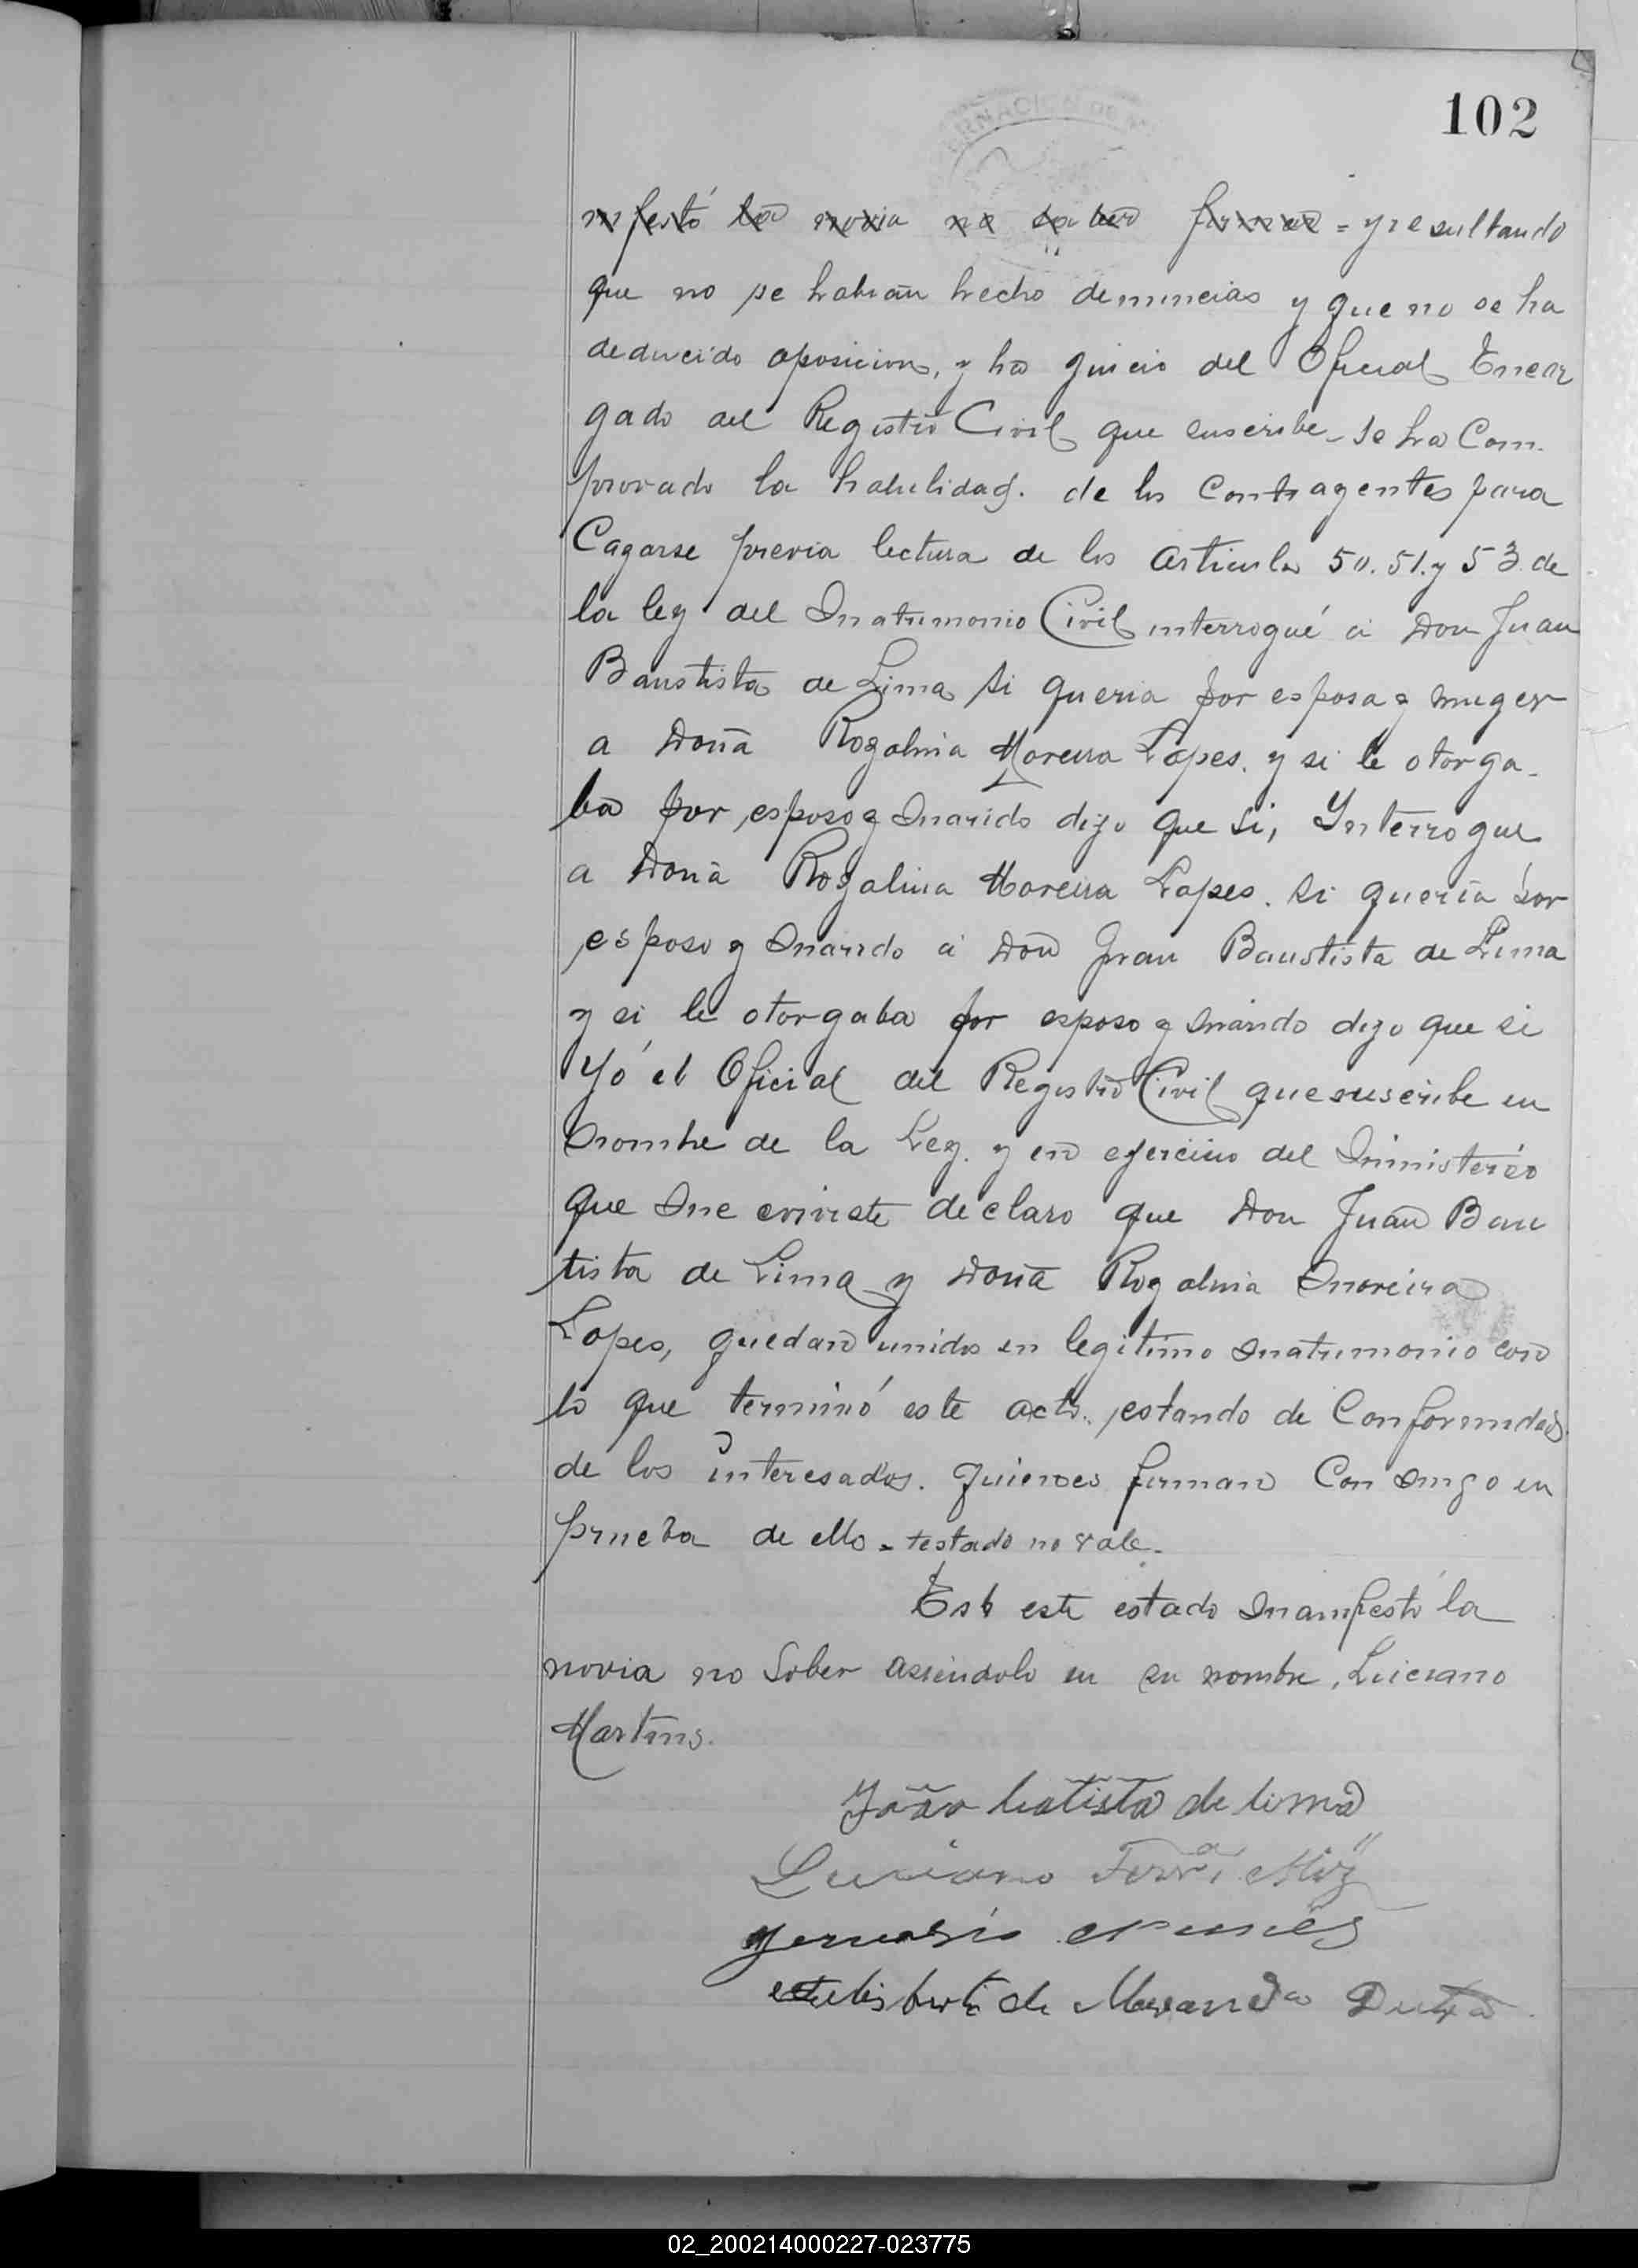 102
nifestó la novia no saber firmar = y resultando
que no se habian hecho denuncias y que no se ha
deducido oposicion, y ha juicio del Oficial Encar
gado del Registro Civil que suscribe se ha Com-
provado la habilidad. de los Contragentes para
Cazarse previa lectura de los Articulos 50. 51. y 53 de
la ley del Matrimonio Civil interrogué á Don Juan
Baustista de Lima si queria por esposa y muger
a Doña Rozalina Moreira Lopes. y si le otorga-
ba por esposo y marido dijo que si, Ynterrogue
a Doña Rozalina Moreira Lopes. si queria por
esposo y marido á Don Juan Baustista de Lima
y si le otorgaba por esposo y marido dijo que si
Yó el Oficial del Registro Civil que suscribe en
nombre de la Ley. y en ejercicio del ministerio
que me enviste declaro que Don Juan Bau
tista de Lima y Doña Rozalina Moreira
Lopes, quedan unidos en legitimo matrimonio con
lo que terminó este acto., estando de Conformidad
de los interesados. quienes firman Con migo en
prueba de ello - testado no vale -
este estado manifestó la
novia no Saber asiendolo en su nombre, Luciano
Martins.
João batista de lima
Luciano Ferrª
Gervasio Nunes
de Miranda Dutra
02_200214000227-023775